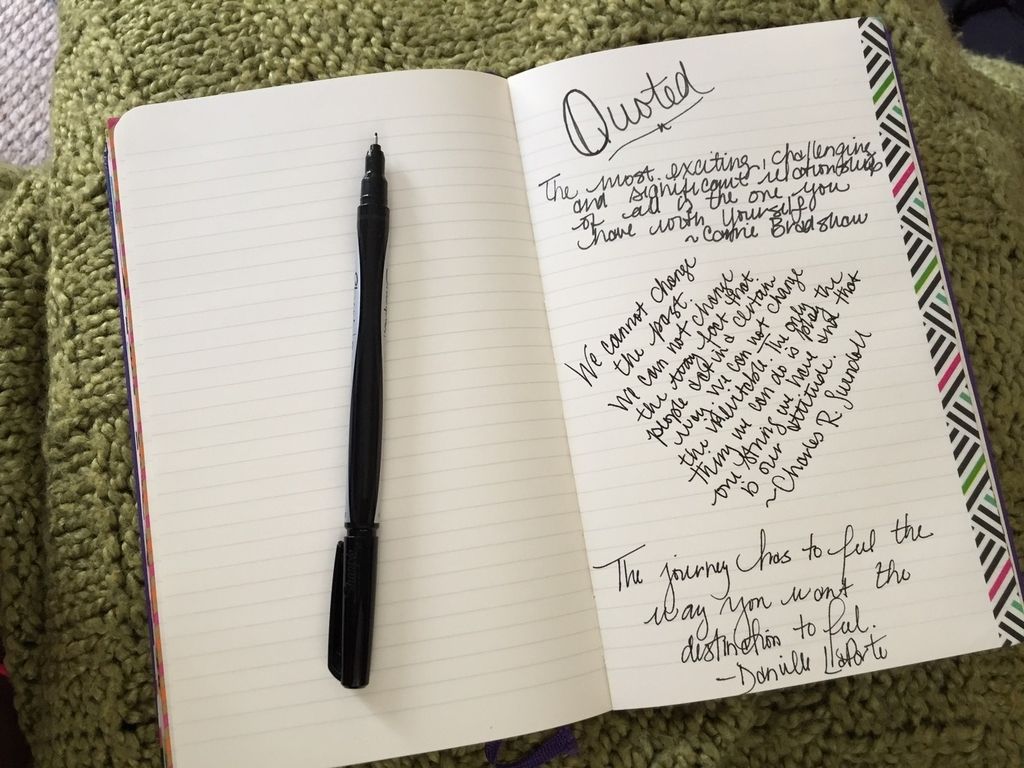 Quoted
The most exciting, challenging
and significant relationship
of all is the one you
have with yourself
~ Carrie Bradshaw
We cannot change
the past.
We can not change
the way fact that
people act in a certain
way. We can not change
the inevitable. The only
thing we can do is play the
one string we have and that
is our attitude.
~Charles R. Swindoll
The journey has to feel the
way you want the
destination to feel.
-Danielle LaPorte